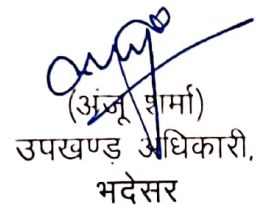 (अंजू शर्मा)
उपखण्ड़ अधिकारी,
भदेसर